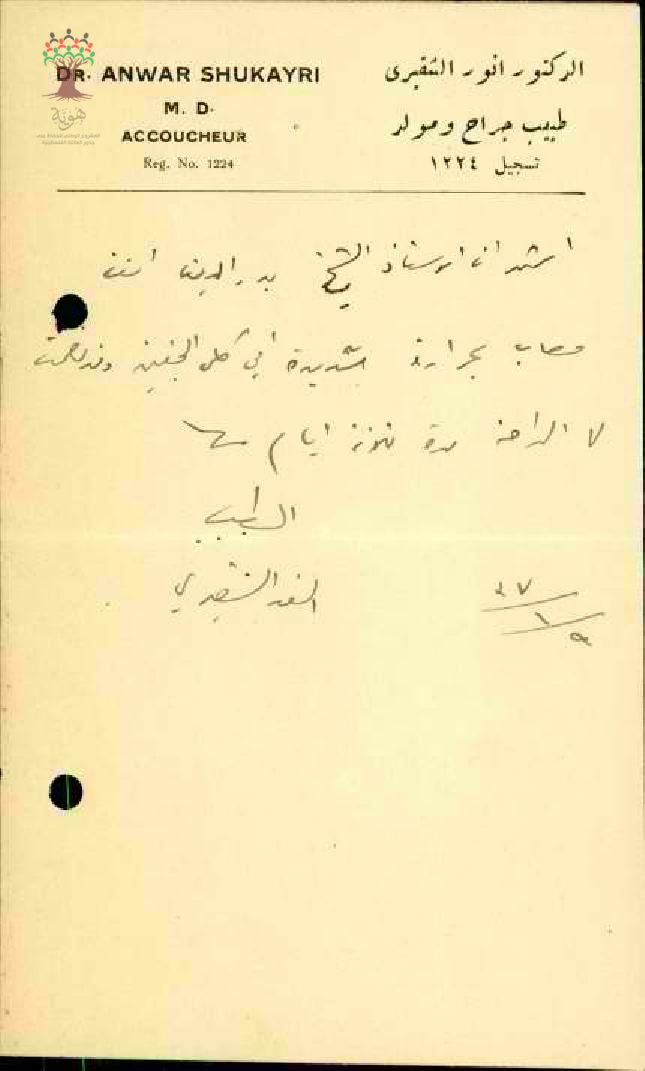 DR. ANWAR SHUKAYRI
M. D.
ACCOUCHEUR
Reg. No. 1224
الدكتور انور الشقيرى
طبيب جراح ومولد
تسجيل ١٢٢٤
هوية
اشهد ان الاستاذ الشيخ بدر الدين
مصاب بحرارة شديدة في كلى الجفنين
الراحة مدة ثلاثة ايام
الطبيب
الشقيري